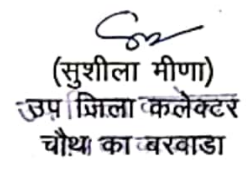 (सुशीला मीणा)
उप जिला कलेक्टर
चौथ का बरवाडा